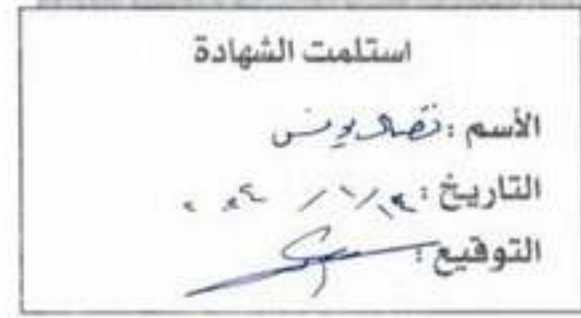 استلمت الشهادة
الأسم : نضال يونس
التاريخ : ١ / ٢٠٢٤
التوقيع :